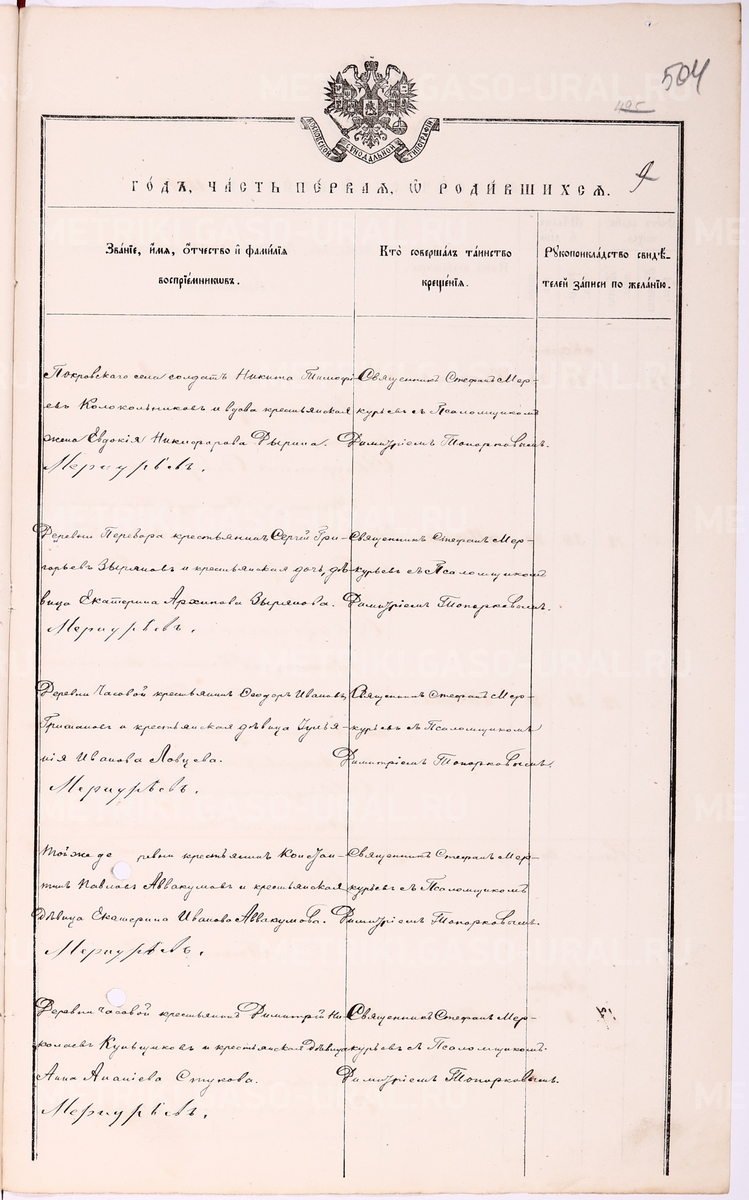 504
495
МОСКОВСКОЙ СѴНОДАЛЬНОЙ ТИПОГРАФІИ
ГО́ДЪ, ЧА́СТЬ ПЕ́РВАЯ, Ѿ РОДИ́ВШИХСЯ. 9
Зва́ніе, и́мя, ѻ́тчество и҆ фами́лія
воспріе́мниковъ.
Кто̀ соверша́лъ та́инство
креще́нія.
Рꙋкоприкла́дство свидѣ́-
телей за́писи по жела́нію.
Покровскаго села солдатъ Никита Тимофѣ-
евъ Колокольниковъ и вдова крестьянская
жена Евдокія Никифорова
Меркурьевъ.
Священникъ Стефанъ Мер-
курьевъ съ Псаломщикомъ
Димитріемъ Топорковымъ.
Деревни Перебора крестьянинъ Сергій Гри-
горьевъ Зыряновъ и крестьянская дочь, дѣ-
вица Екатерина Архипова Зырянова.
Меркурьевъ.
Священникъ Стефанъ Мер-
курьевъ съ Псаломщикомъ
Димитріемъ Топорковымъ.
Деревни Часовой крестьянинъ Ѳеодоръ Ивановъ
и крестьянская дѣвица Іулья-
нія Иванова
Меркурьевъ.
Священникъ Стефанъ Мер-
курьевъ съ Псаломщикомъ
Димитріемъ Топорковымъ.
Той же деревни крестьянинъ Констан-
тинъ Павловъ Аввакумовъ и крестьянская
дѣвица Екатерина Иванова Аввакумова.
Меркурьевъ.
Священникъ Стефанъ Мер-
курьевъ съ Псаломщикомъ
Димитріемъ Топорковымъ.
Деревни Часовой крестьянинъ Димитрій Ни-
колаевъ и крестьянская дѣвица
Анна Ананіева Стукова.
Меркурьевъ.
Священникъ Стефанъ Мер-
курьевъ съ Псаломщикомъ
Димитріемъ Топорковымъ.